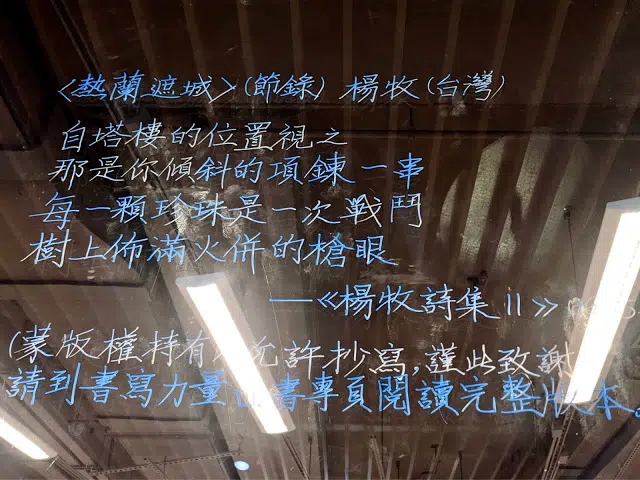 〈熱蘭遮城〉(節錄) 楊牧(台灣)
自塔樓的位置視之
那是你傾斜的項鍊一串
每一顆珍珠是一次戰鬥
樹上佈滿火併的槍眼
—《楊牧詩集 II》
(蒙版權持有 允許抄寫,謹此致謝
請到書寫力量 書專頁閱讀完整版本。